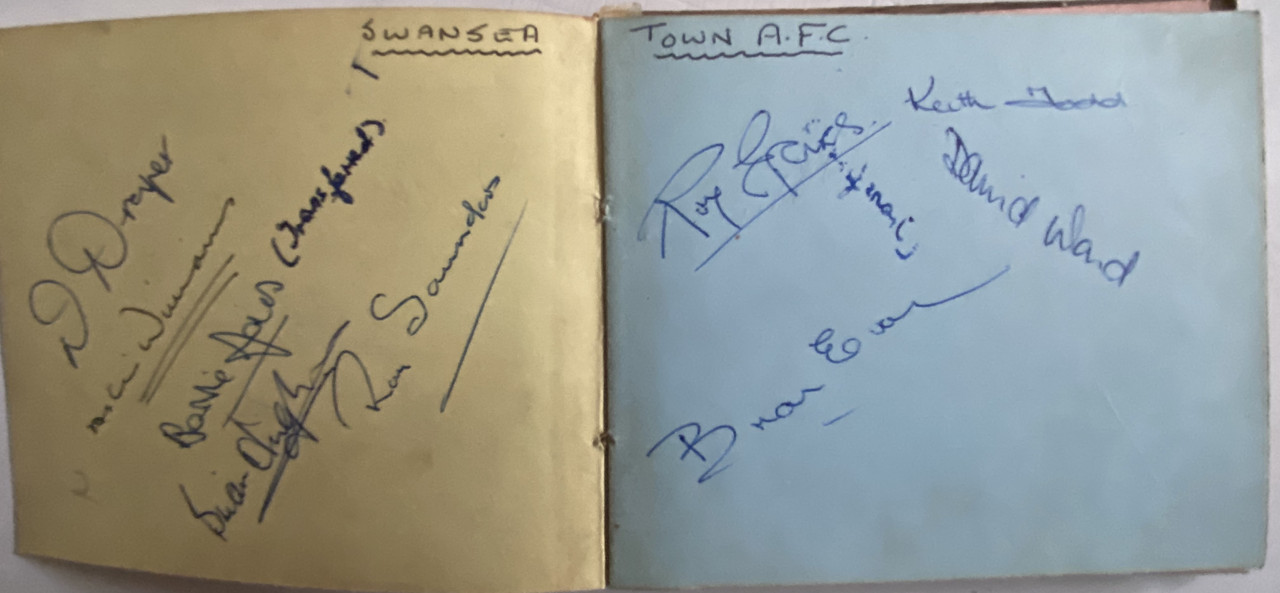 SWANSEA
D Draper
Williams
Barrie Jones (Transferred)
Brian Hughes
Ron Saunders
TOWN A.F.C.
Keith Todd
Roy
David Ward
Brian Evans